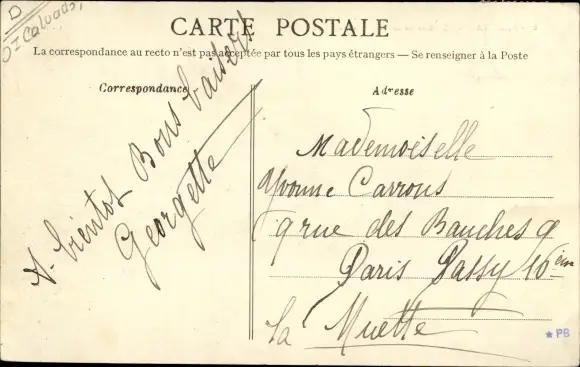 D
Calvados
CARTE POSTALE
La correspondance au recto n'est pas acceptée par tous les pays étrangers — Se renseigner à la Poste
Correspondance
A bientot Bons baisers
Georgette
Adresse
Mademoiselle
Yvonne Carrous
9 rue des Bauches 9
Paris Passy 16ème
La Muette
★ PB